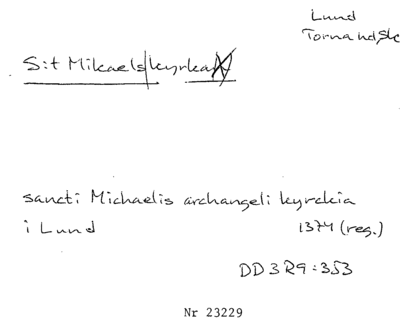 Lund
Torna hd, Sk
S:t Mikaels|kyrka
sancti Michaelis archangeli kyrckia
i Lund 1374 (reg.)
DD 3 R 9:353
Nr 23229